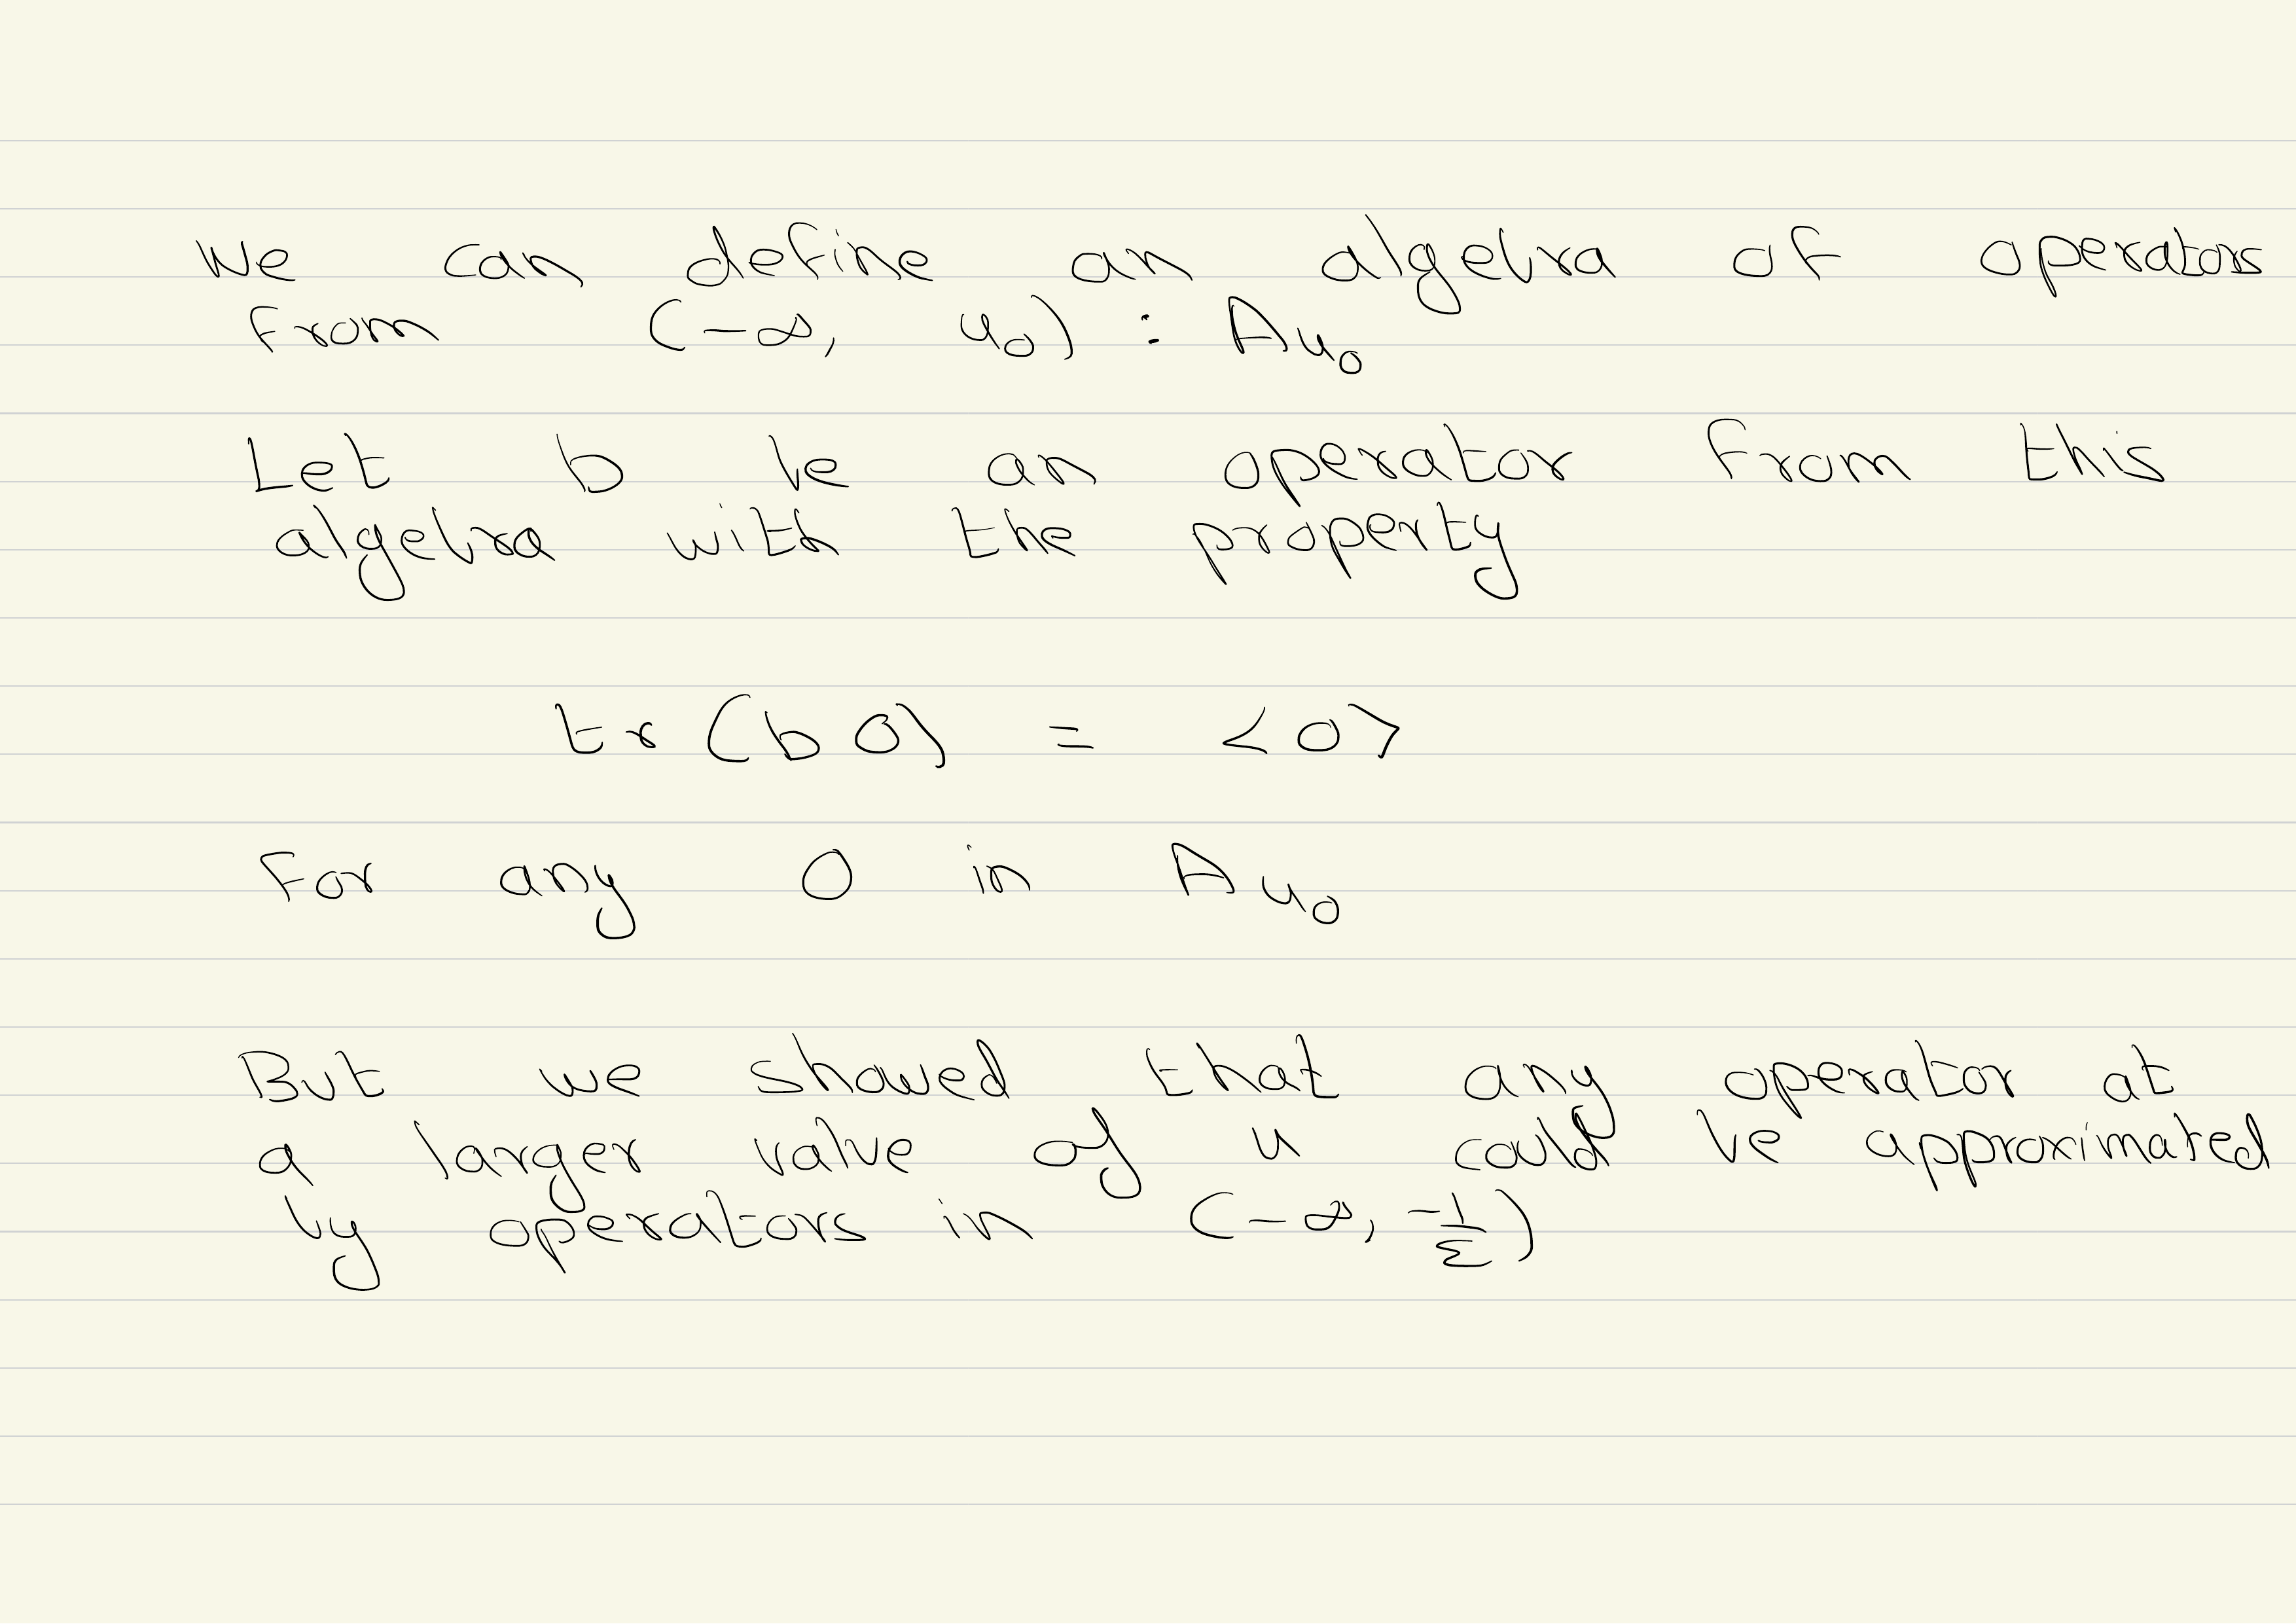 We can define an algebra of operators
from (-∞, u₀) : A_{u₀}
Let b be an operator from this
algebra with the property
tr (b O) = <O>
For any O in A_{u₀}
But we showed that any operator at
a larger value of u could be approximated
by operators in (-∞, -1/ε)